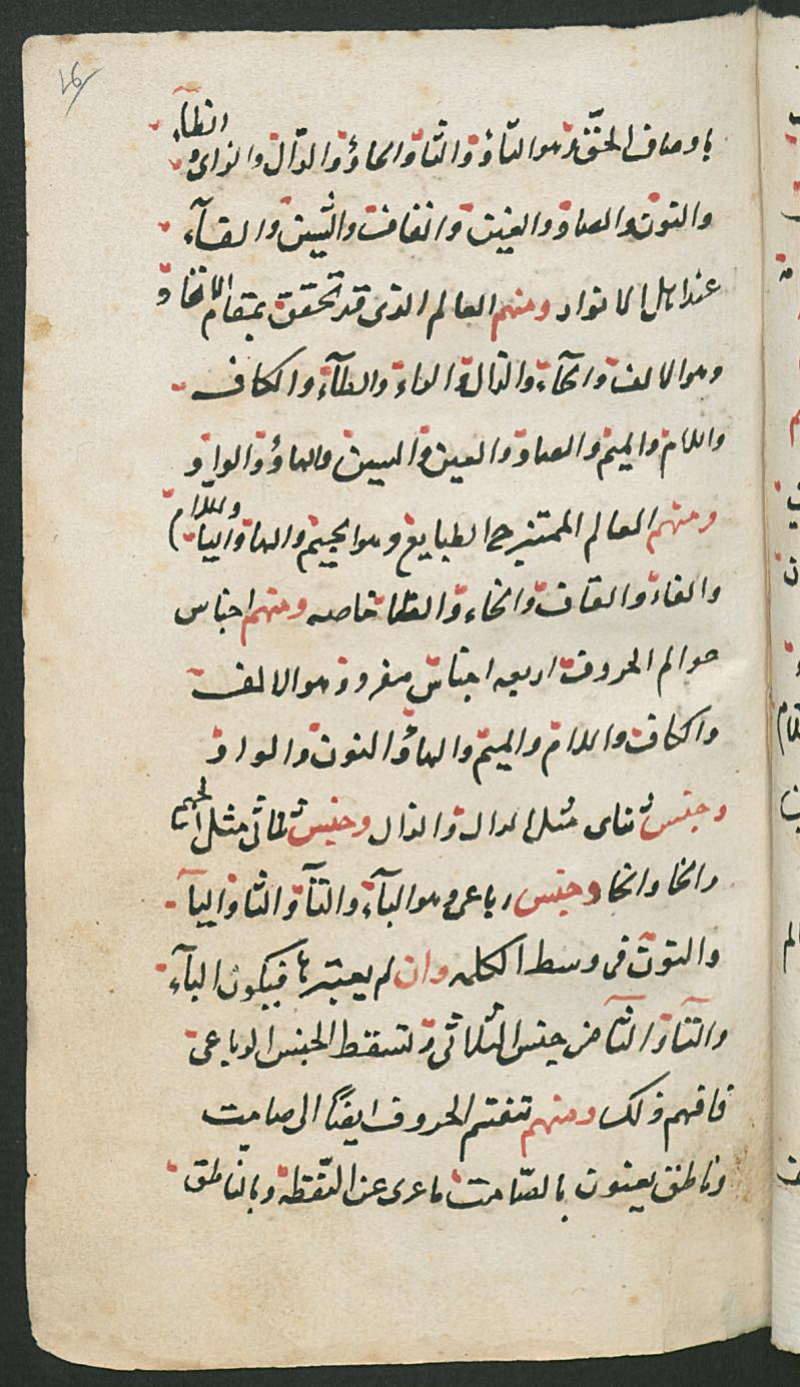 ٤٦
باوصاف الحق وهو التاؤ والثاؤ والحاؤ والذال والزاى والظاء
والنون والضاد والغين والقاف والشين والفآء
عند اهل الانوار ومنهم العالم الذى قد تحقق بمقام الاتحاد
وهو الالف والحآء والدال والراء والطآء والكاف
واللام والميم والصاد والعين والسين والهاؤ والواو
ومنهم العالم الممتزج الطبايع وهو الجيم والهاؤ واليا واللام
والفاء والقاف والخاء والظا خاصه ومنهم اجناس
عوالم الحروف اربعه اجناس مفرد وهو الالف
والكاف واللام والميم والهاؤ النون والواو
وجنس ثناى مثل الدال والذال وجنس ثلاثى مثل الجيم
والحا والخا وجنس رباعى وهو البآء والتآ والثا واليآ
والنون فى وسط الكلمه وان لم يعتبرها فيكون البآء
والتا والثا من جنس الثلاثى وتسقط الجنس الرباعى
فافهم ذلك ومنهم تنقسم الحروف ايضًا الى صامت
وناطق يعنون بالصّامت ما عرى عن النّقطه وبالنّاطق